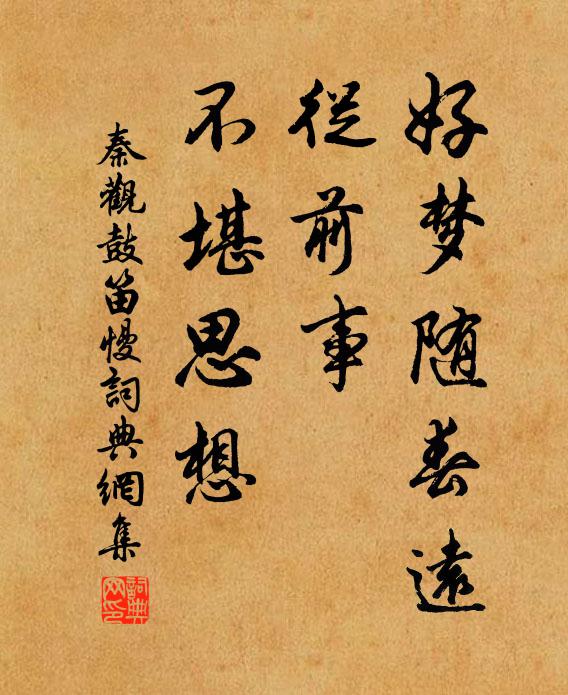 好梦随春遠
從前事
不堪思想
秦觀鼓笛慢詞典網集
詞典网印